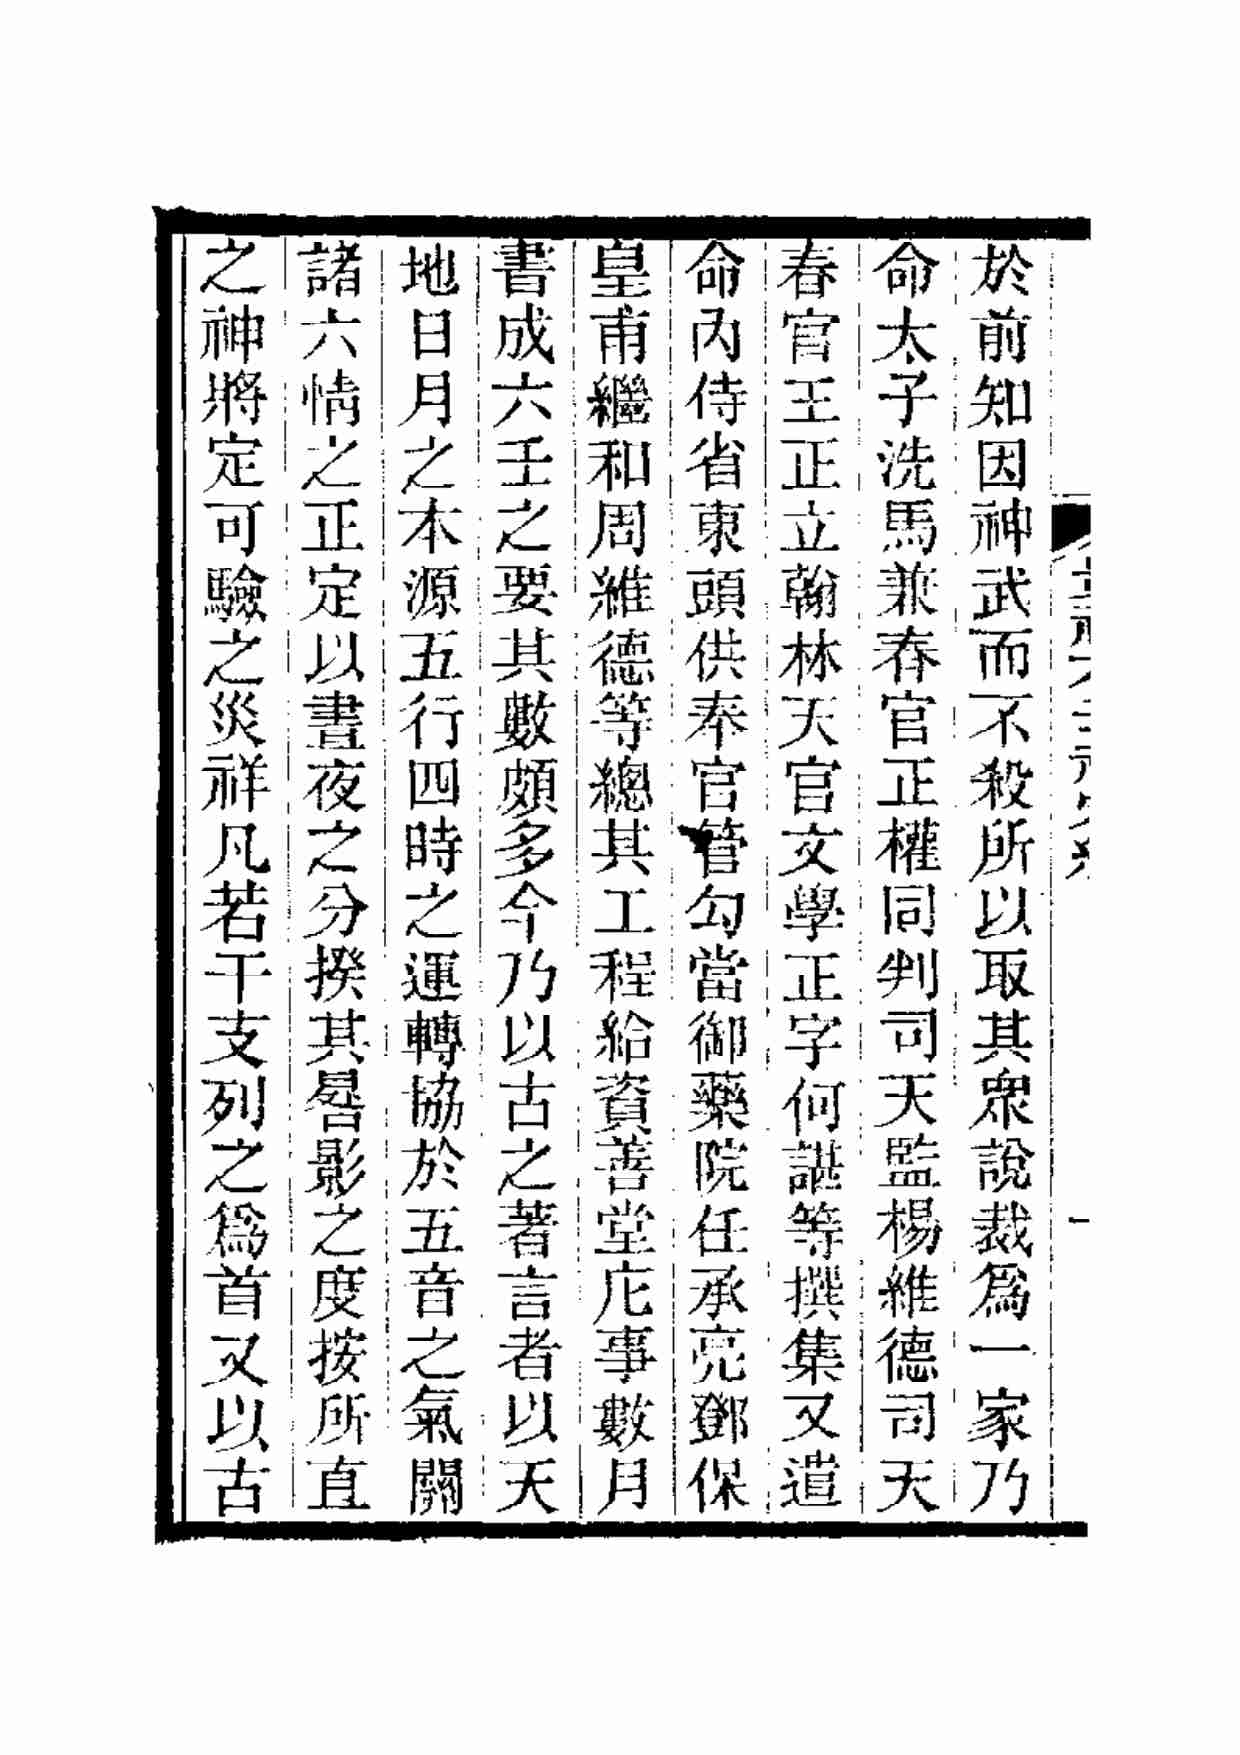 於前知因神武而不殺所以取其衆說裁爲一家乃
命太子洗馬兼春官正權同判司天監楊維德司天
春官王正立翰林天官文學正字何諶等撰集又遣
命内侍省東頭供奉官管勾當御藥院任承亮鄧保
皇甫繼和周維德等總其工程給資善堂庀事數月
書成六壬之要其數頗多今乃以古之著言者以天
地日月之本源五行四時之運轉協於五音之氣關
諸六情之正定以晝夜之分揆其晷影之度按所直
之神將定可驗之災祥凡若干支列之爲首又以古